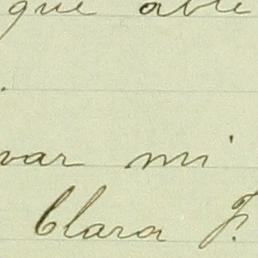 que able
var mi
Clara F.